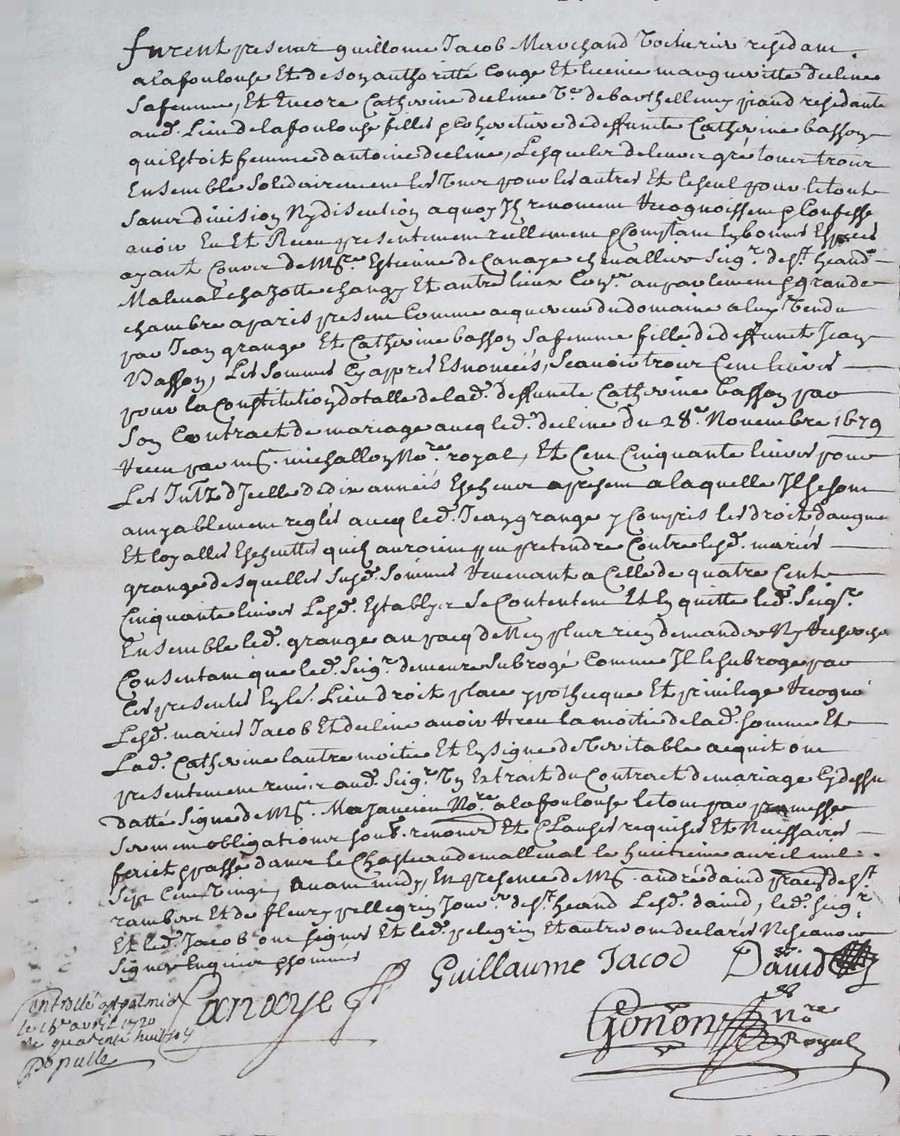 furent presens guillome Jacob Marchand Voiturier residant
a lafoulouse Et de soy authoritté Conge Et licence margueritte decline
Safemme, Et Encore Catherine decline Ve. debarthellemy piaud residante
aud. Lieu delafoulouse filles & coheretieres dedeffuncte Catherine basson
quiEstoit femme dantoine decline, Lesquelles deleur gré tous trois
Ensemble Solidairement les Uns pour les autres Et leseul pour letout
Sans division Ny discution aquoy Ils renoncent recognoissent & Confesse
avoir Eu Et Receu presentement reellement & Comptant En bonnes Especes
ayant Cours de Mre. Estienne deCanaye chevallier Seigr. de st. heand
Maleval chazotte changy Et autre lieux Conser. au parlement & grande
chambre aparis present Comme acquereur du domaine a luy Vendu
par Jean grange Et Catherine basson Safemme fille dedeffunt Jean
Basson, Les Sommes Cy apres Esnoncées, Scavoir trois Cent livres
pour la Constitution dotalle de lad. deffuncte Catherine basson par
Son Contract de mariage avecq led. decline du 28e. Novembre 1679
Receu par me. michallon Nore. royal, Et Cent Cinquante livres pour
Les Intz. d'Icelle dedix années Escheues apresent a laquelle Ils sesont
amyablement reglés avecq led. Jean grange y Compris les droit daugment
Et loyalles Escheuttes quils auroient peu pretendre Contre lesd. mariés
grange desquelles Susd. Sommes Revenant a Celle de quatre Cent
Cinquante livres Lesd. Establys se Contentent Et En quitte led. Seigr.
Ensemble led. grange au pacq de Nen plus rien demander Ny rechercher
Consentant que led. Seigr. demeure Subrogé Comme Ils le subroge par
Ces presentes En les. Lieu droit place ypothecque Et privilege Recognoissant
Lesd. mariés Jacob Et decline avoir Receu la moitié delad. somme Et
Lad. Catherine lautre moitié Et En Signe de Veritable acquit ont
presentement remis aud. Seigr. Un Extrait du Contract demariage Cy dessus
datté Signé de Me. Mazancieu Nore. a lafoulouse letout par promesse
Serment obligations soubs. renonces Et Clauses requises Et Necessaires
faict & passé dans le Chasteau demalleval le huitieme avril mil
Sept Cent Vingt, avant midy, En presence de Me. andré david pratn de st.
rambert Et de fleury pellegrin Jour. de st. heand Lesd. david, led. Seigr.
Et led. Jacob ont signes Et led. pelegrin Et autres ont declarés Ne Scavoir
Signer Enquis & sommés
Guillaume Jacod David
Canaye
Gonon Nore Royal
Controllé a
le 16e avril 1720
quarente huit